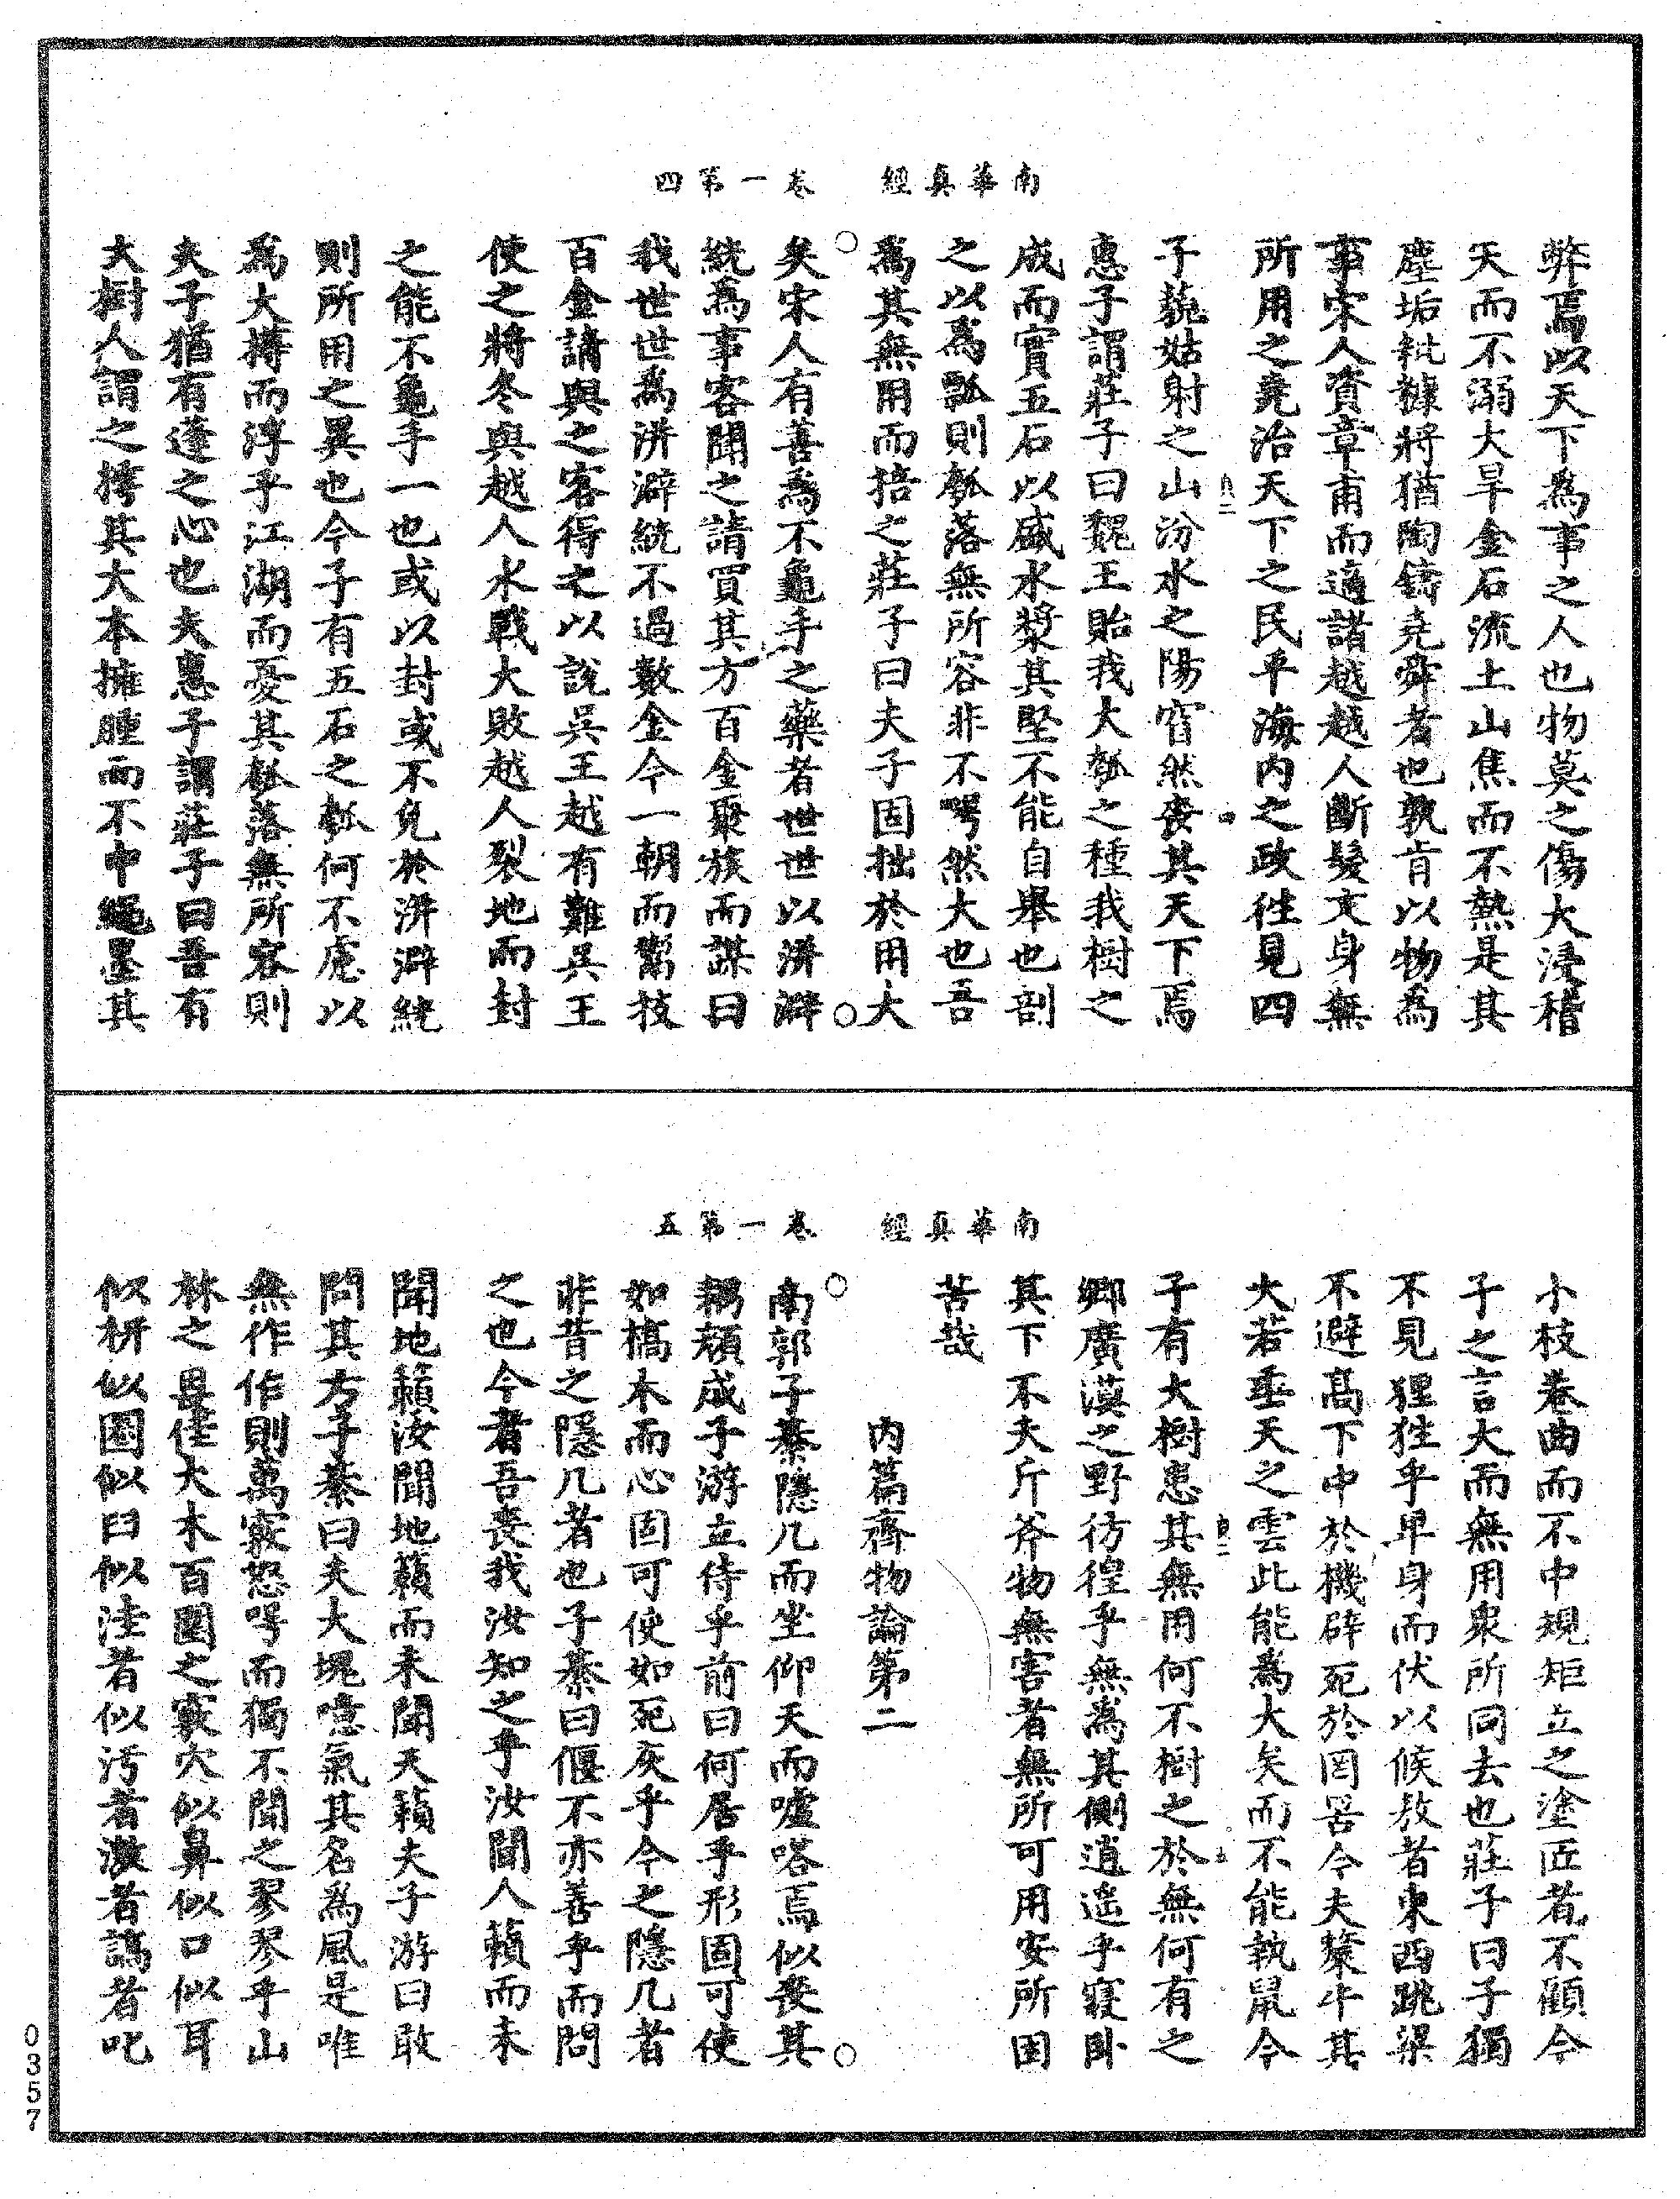 南華真經　卷一第四
弊焉以天下為事之人也物莫之傷大浸稽
天而不溺大旱金石流土山焦而不熱是其
塵垢粃糠將猶陶鑄堯舜者也孰肯以物為
事宋人資章甫而適諸越越人斷髮文身無
所用之堯治天下之民平海内之政往見四
子藐姑射之山汾水之陽窅然喪其天下焉
惠子謂莊子曰魏王貽我大瓠之種我樹之
成而實五石以盛水漿其堅不能自舉也剖
之以為瓢則瓠落無所容非不呺然大也吾
為其無用而掊之莊子曰夫子固拙於用大
矣宋人有善為不龜手之藥者世世以洴澼
絖為事客聞之請買其方百金聚族而謀曰
我世世為洴澼絖不過數金今一朝而鬻技
百金請與之客得之以說吳王越有難吳王
使之將冬與越人水戰大敗越人裂地而封
之能不龜手一也或以封或不免於洴澼絖
則所用之異也今子有五石之瓠何不慮以
為大樽而浮乎江湖而憂其瓠落無所容則
夫子猶有蓬之心也夫惠子謂莊子曰吾有
大樹人謂之樗其大本擁腫而不中繩墨其
南華真經　卷一第五
小枝卷曲而不中規矩立之塗匠者不顧今
子之言大而無用衆所同去也莊子曰子獨
不見狸狌乎卑身而伏以候敖者東西跳梁
不避髙下中於機辟死於罔罟今夫斄牛其
大若垂天之雲此能為大矣而不能執鼠今
子有大樹患其無用何不樹之於無何有之
鄉廣漠之野彷徨乎無為其側逍遙乎寢臥
其下不夭斤斧物無害者無所可用安所困
苦哉
内篇齊物論第二
南郭子綦隱几而坐仰天而噓嗒焉似喪其
耦顏成子游立侍乎前曰何居乎形固可使
如槁木而心固可使如死灰乎今之隱几者
非昔之隱几者也子綦曰偃不亦善乎而問
之也今者吾喪我汝知之乎汝聞人籟而未
聞地籟汝聞地籟而未聞天籟夫子游曰敢
問其方子綦曰夫大塊噫氣其名為風是唯
無作作則萬竅怒呺而獨不聞之翏翏乎山
林之畏佳大木百圍之竅穴似鼻似口似耳
似枅似圈似臼似洼者似污者激者謞者叱
0357